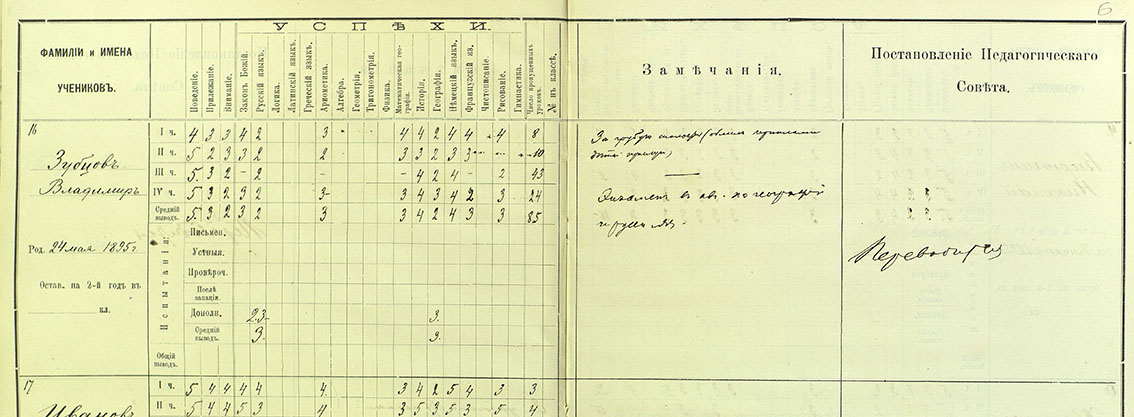 6
УСПѢХИ.
ФАМИЛІИ и ИМЕНА
УЧЕНИКОВЪ.
Поведеніе.
Прилежаніе.
Вниманіе.
Законъ Божій.
Русскій языкъ.
Логика.
Латинскій языкъ.
Греческій языкъ.
Ариѳметика.
Алгебра.
Геометрія.
Тригонометрія.
Физика.
Математическая географія.
Исторія.
Географія.
Нѣмецкій языкъ.
Французскій яз.
Чистописаніе.
Рисованіе.
Гимнастика.
Число пропущенныхъ уроковъ.
№ въ классѣ.
Замѣчанія.
Постановленіе Педагогическаго
Совѣта.
16
Зубцовъ
Владимиръ
Род. 24 мая 1895 г.
Остав. на 2-й годъ въ
кл.
I ч. 4 3 3 4 2 3 4 4 2 4 4 4 8
II ч. 5 2 3 3 2 2 3 3 2 3 3 10
III ч. 5 3 2 - 2 - - 4 2 4 - 2 43
IV ч. 5 3 2 3 2 3 3 4 3 4 2 3 24
Средній
выводъ. 5 3 2 3 2 3 3 4 2 4 3 3 85
Испытанія:
Письмен.
Устныя.
Провѣроч.
Послѣ
вакацій.
Дополн. 23 3
Средній
выводъ. 3 3
Общій
выводъ.
За грубую
Экзаменъ въ авг. по географіи
и русск. яз.
Переводится
17
Ивановъ
I ч. 5 4 4 4 4 4 3 4 2 5 4 3 3
II ч. 5 4 4 5 3 4 3 5 3 5 3 5 4